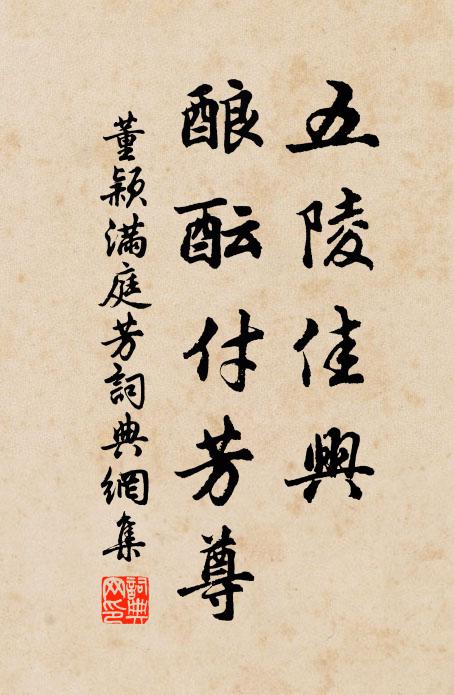 五陵佳興
酿酝付芳尊
董颖满庭芳詞典網集
詞典網印